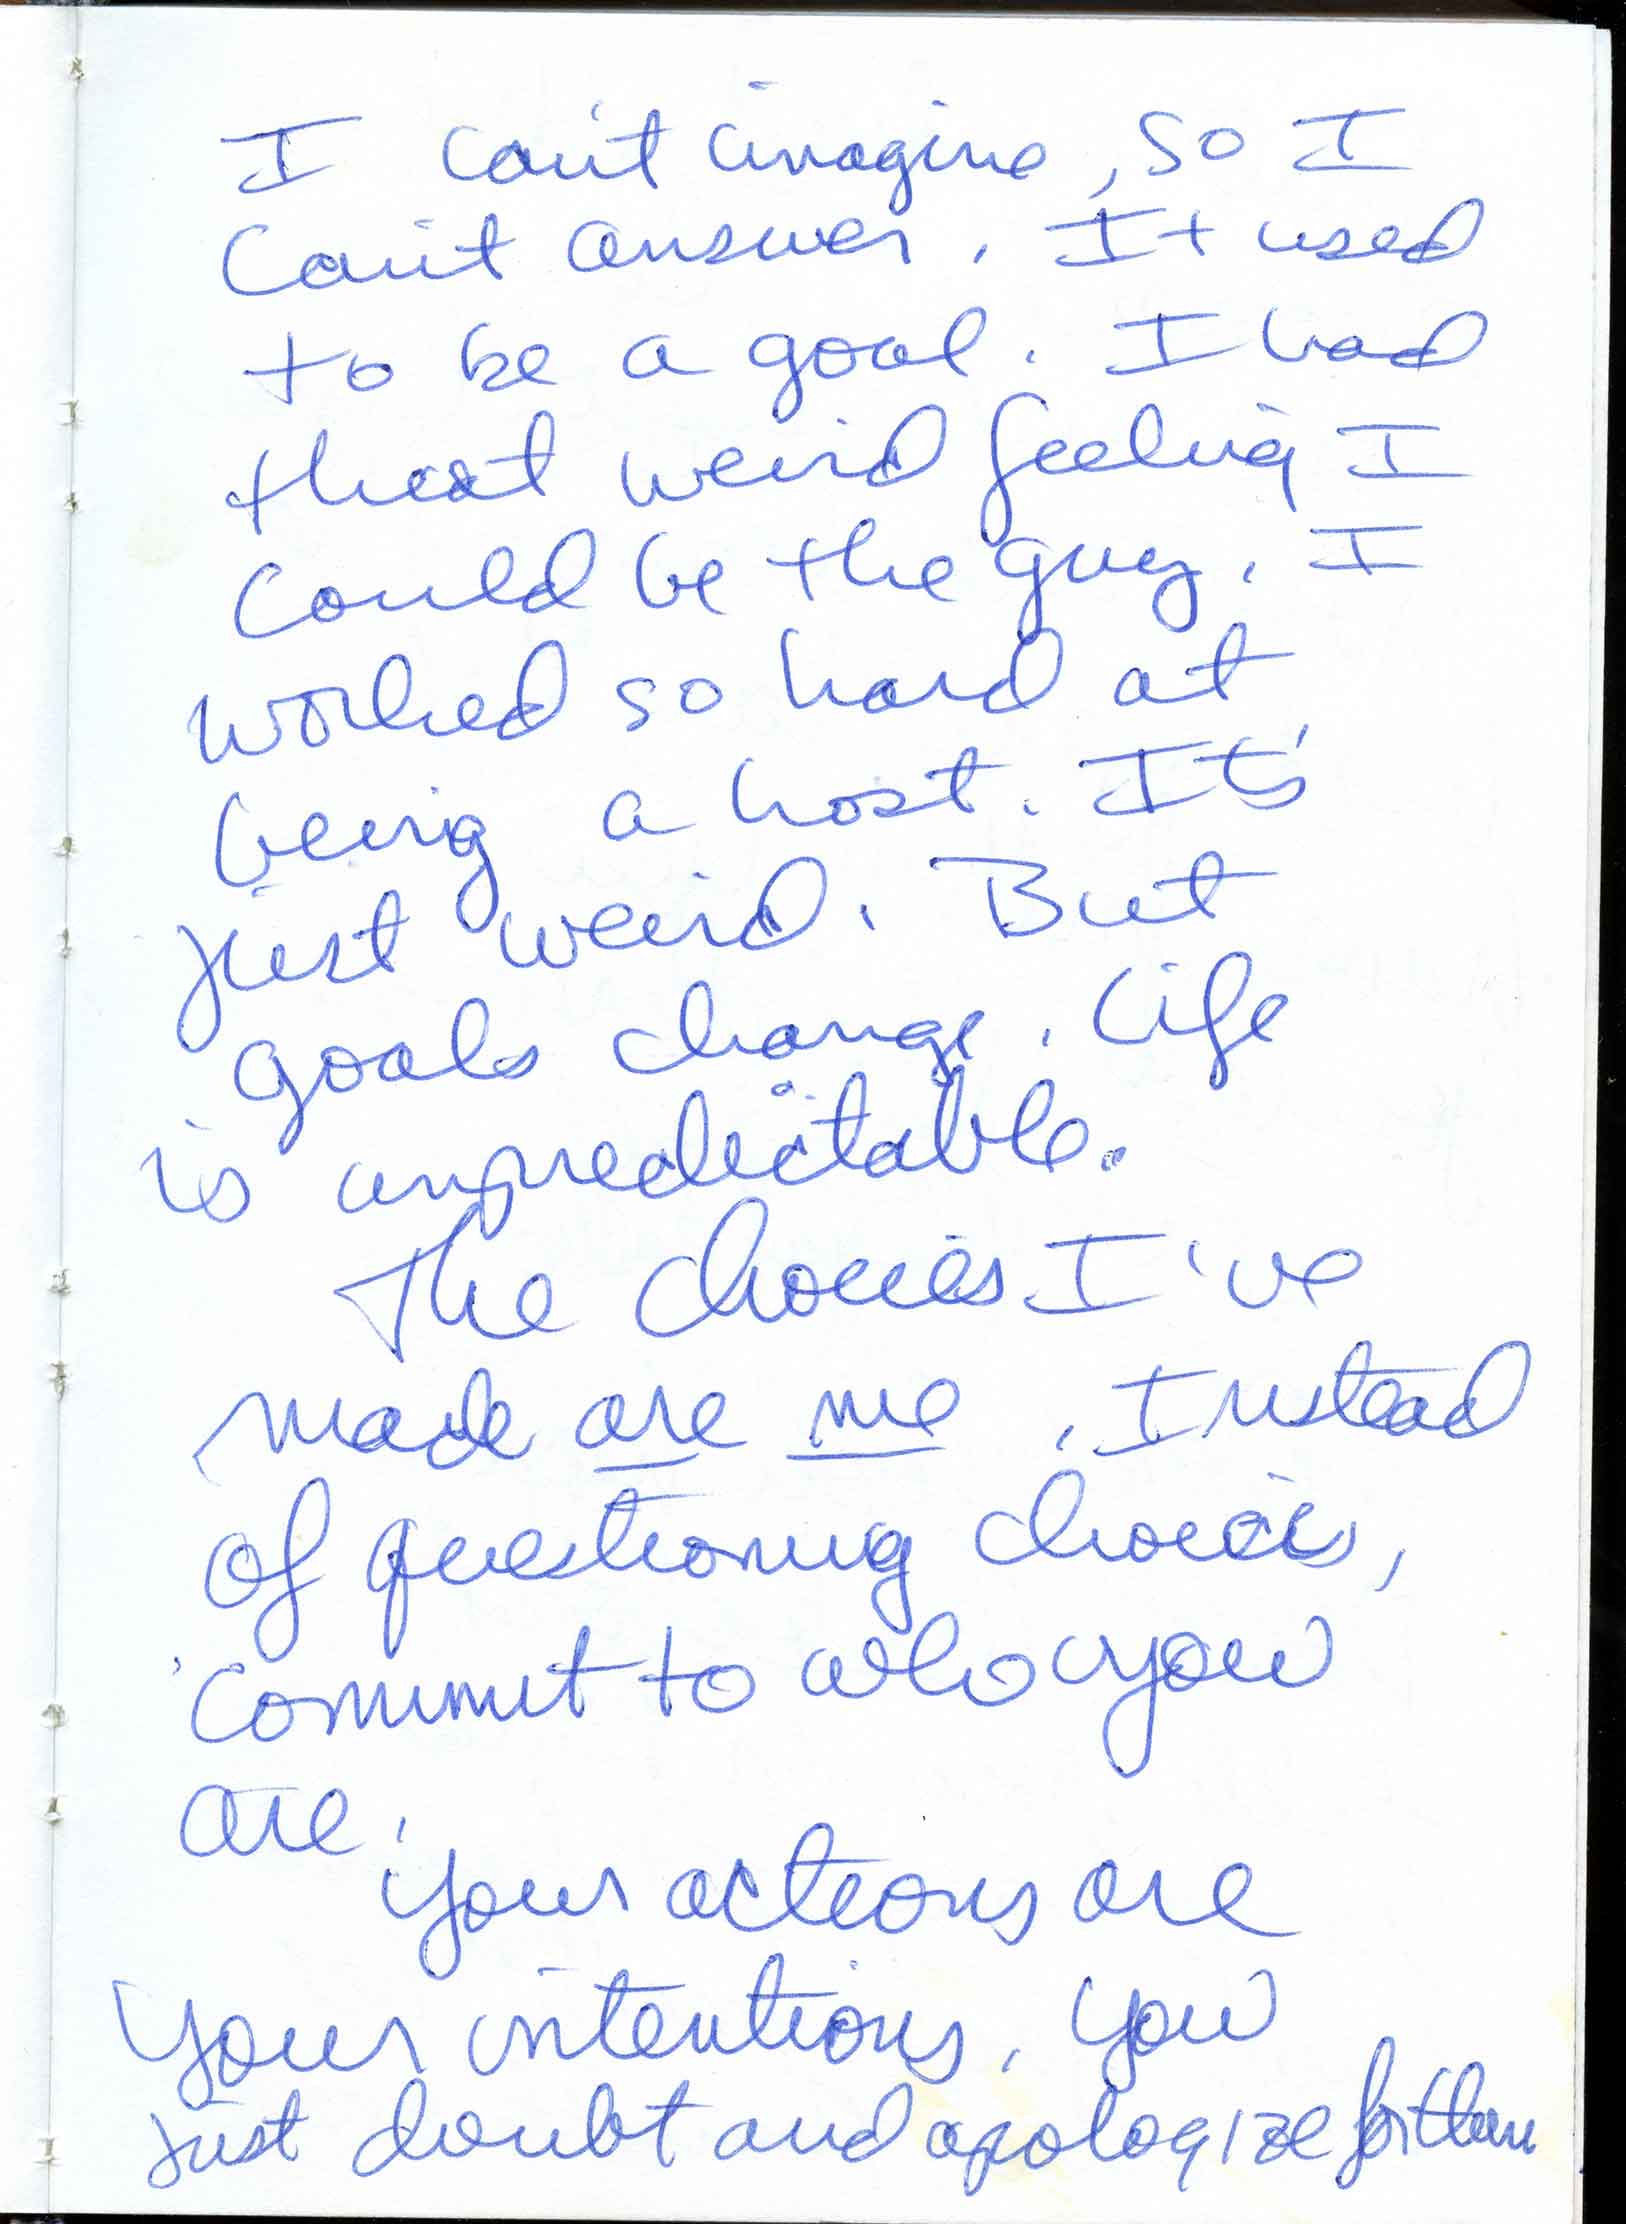 I can't imagine, so I
can't answer. It used
to be a goal. I had
that weird feeling I
could be the guy. I
worked so hard at
being a host. It's
just weird. But
goals change. Life
is unpredictable.
The choices I've
made are me. Instead
of questioning choices,
commit to who you
are.
Your actions are
your intentions. You
just doubt and apologize for them